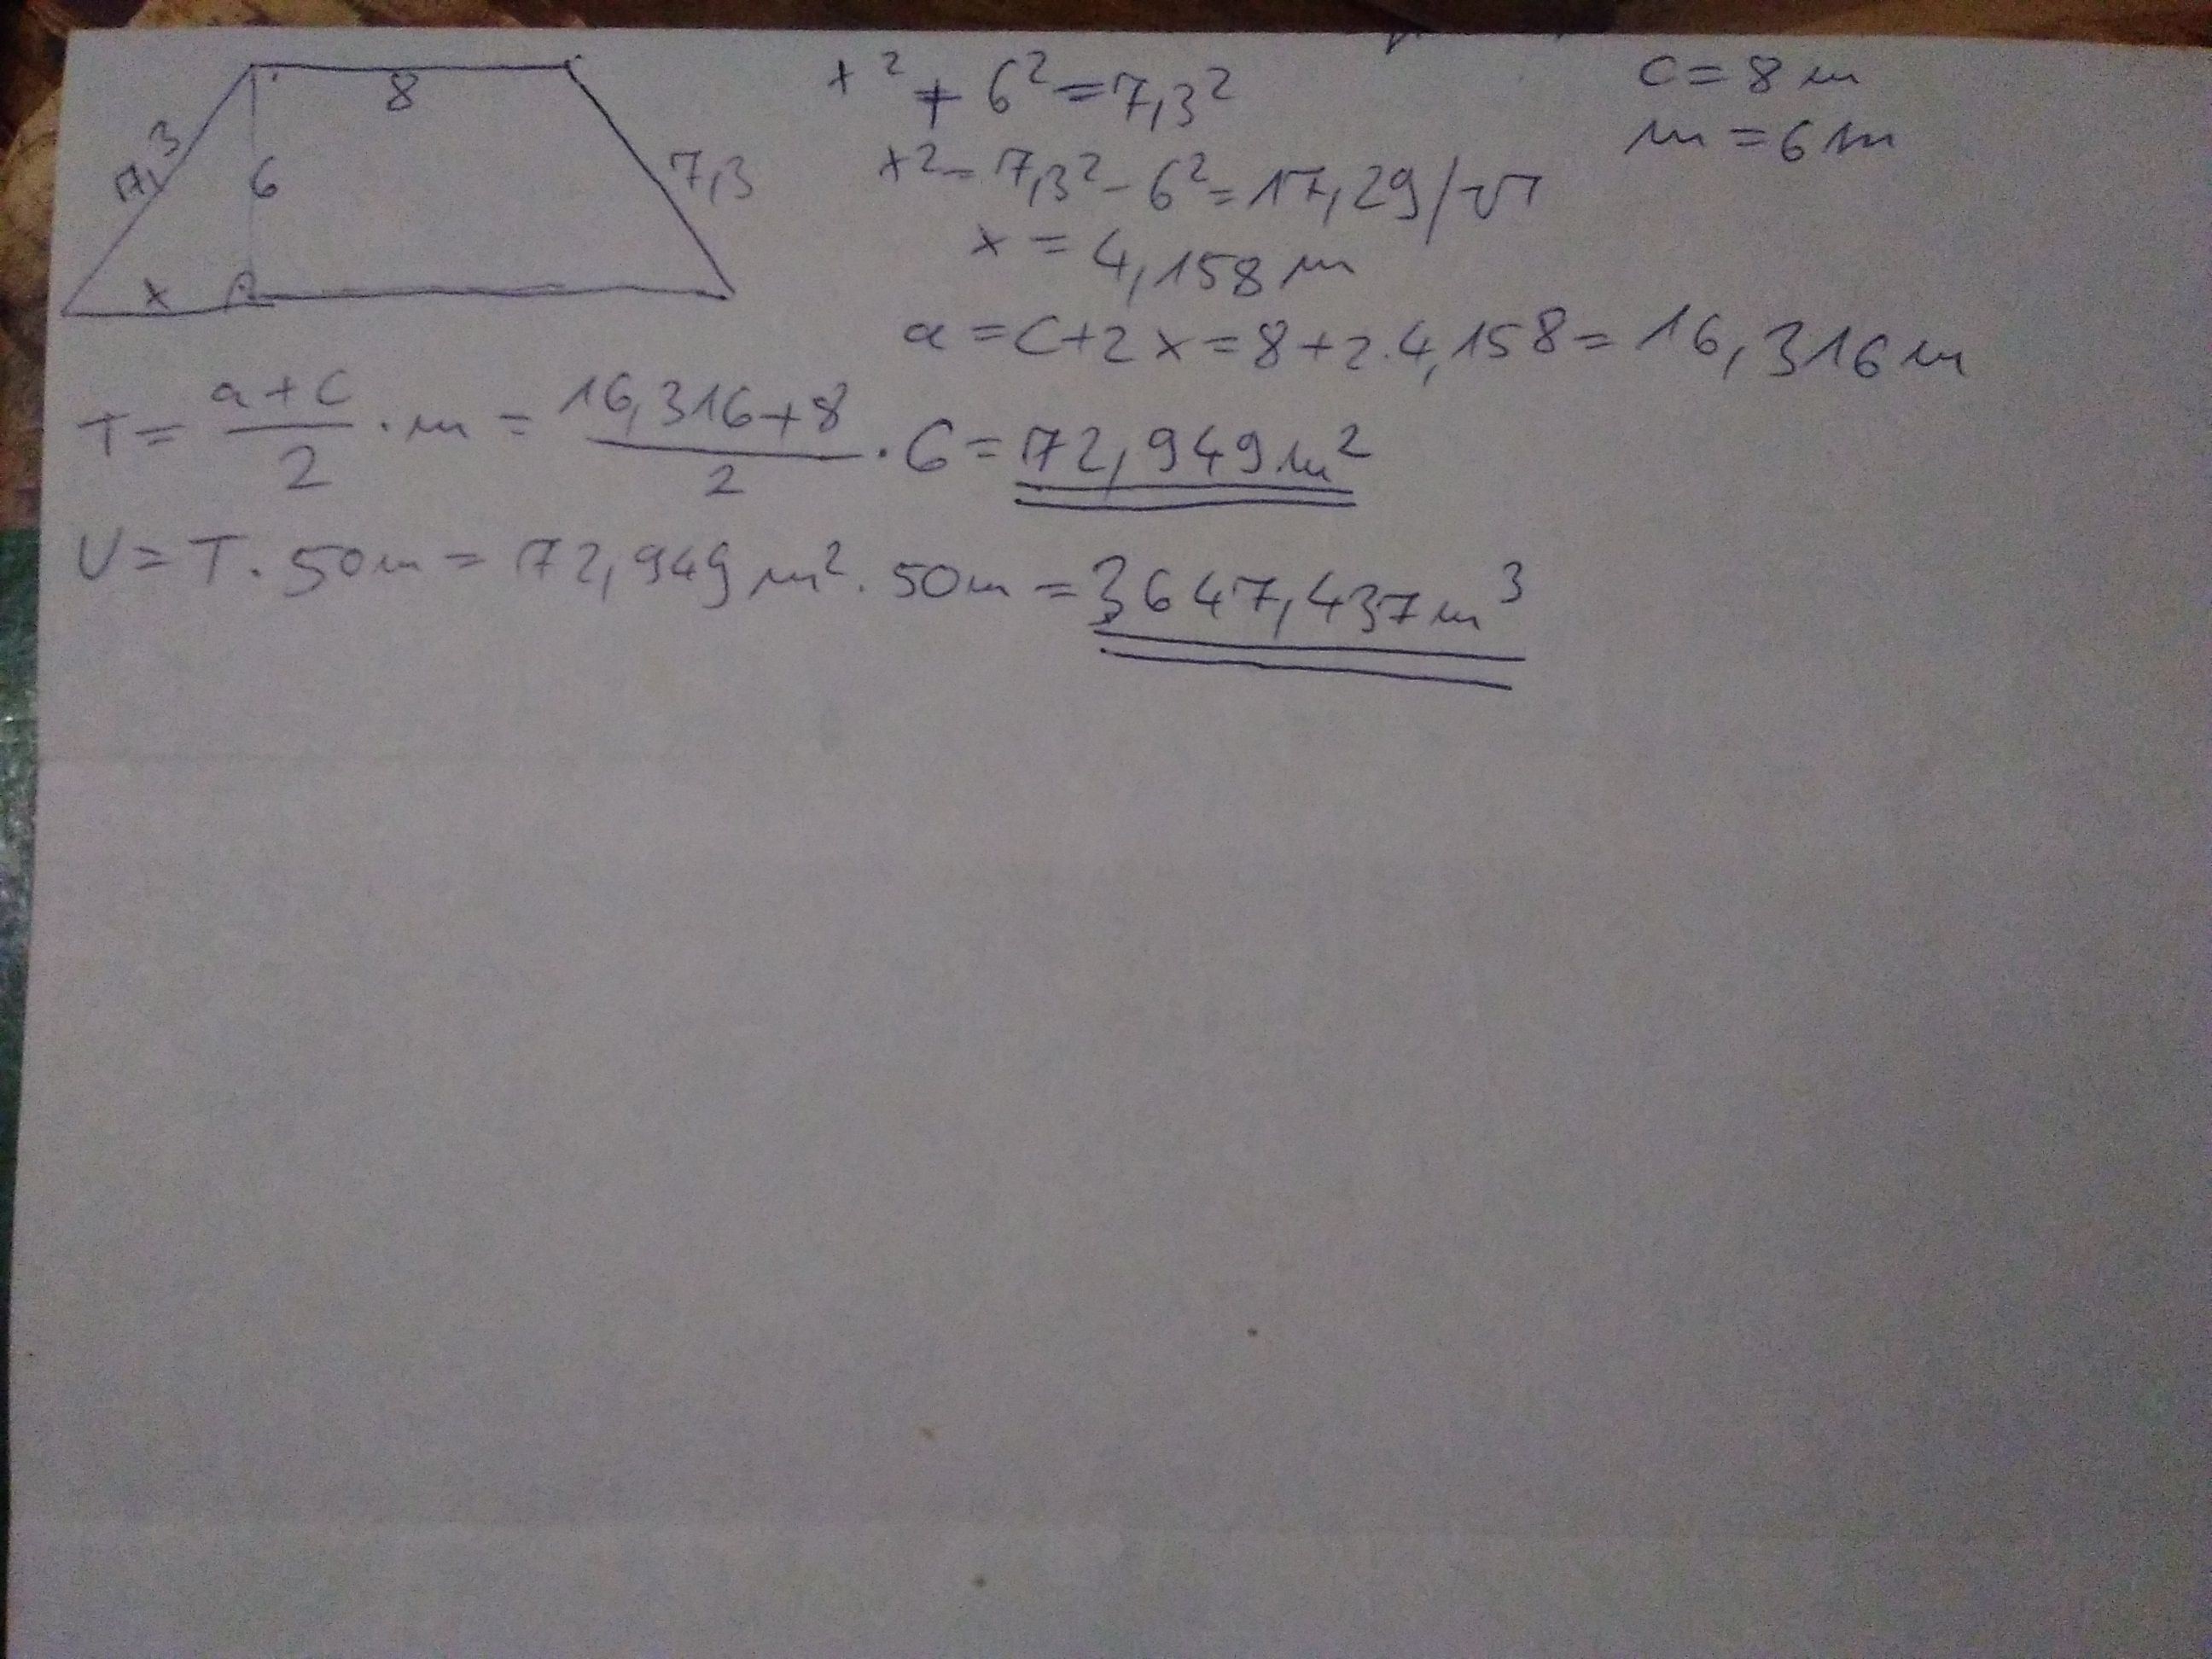 8
7,3
6
7,3
x
x² + 6² = 7,3²
x² = 7,3² - 6² = 17,29 /√
x = 4,158 m
c = 8 m
m = 6 m
a = c + 2x = 8 + 2.4,158 = 16,316 m
T = (a + c)/2 · m = (16,316 + 8)/2 · 6 = 72,949 m²
V = T · 50 m = 72,949 m² · 50 m = 3647,437 m³